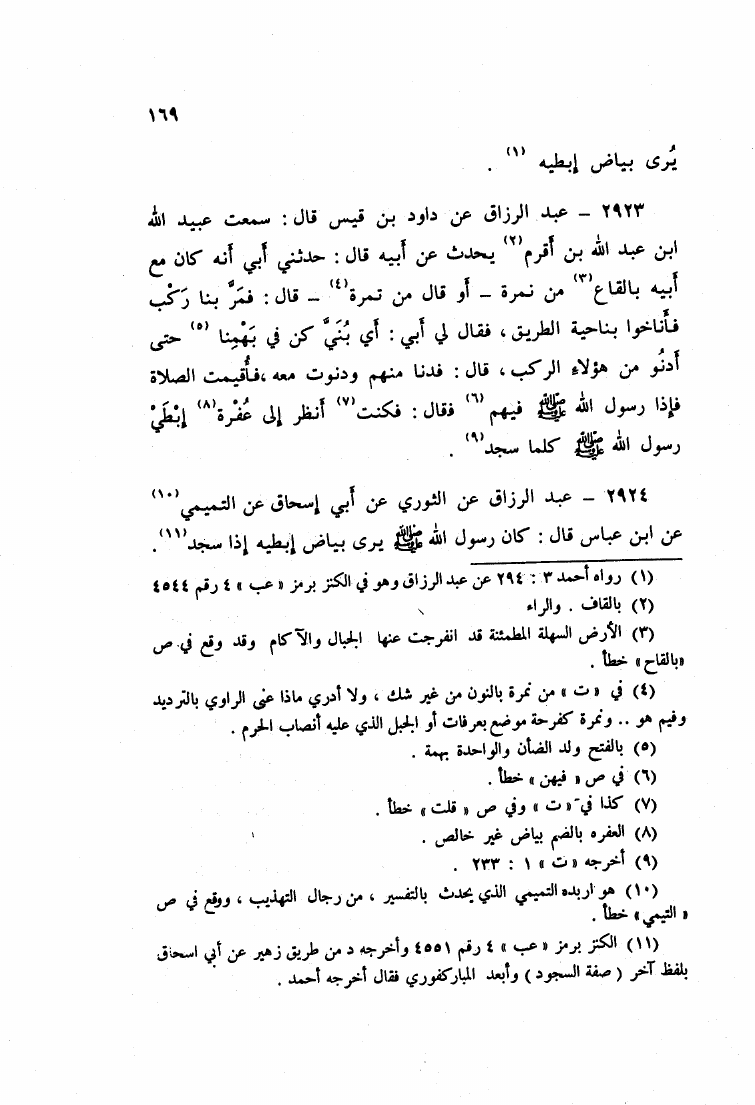 ١٦٩
يُرى بياض إبطيه (١) .
٢٩٢٣ – عبد الرزاق عن داود بن قيس قال : سمعت عبيد الله
ابن عبد الله بن أَقرم(٢) يحدث عن أَبيه قال : حدثني أَبي أَنه كان مع
أَبيه بالقاع(٣) من نمرة – أَو قال من تمرة(٤) – قال : فمَرَّ بنا رَكْب
فأَناخوا بناحية الطريق ، فقال لي أَبي : أَي بُنَيَّ كن في بَهْمِنا (٥) حتى
أَدنُو من هؤلاءِ الركب ، قال : فدنا منهم ودنوت معه ،فأُقيمت الصلاة
فإذا رسول الله ﷺ فيهم(٦) فقال : فكنت(٧) أَنظر إلى عُفْرة(٨) إبْطَيْ
رسول الله ﷺ كلما سجد(٩) .
٢٩٢٤ – عبد الرزاق عن الثوري عن أَبي إسحاق عن التميمي(١٠)
عن ابن عباس قال : كان رسول الله ﷺ يرى بياض إبطيه إذا سجد(١١).
(١) رواه أحمد ٣ : ٢٩٤ عن عبد الرزاق وهو في الكنز برمز « عب » ٤ رقم ٤٥٤٤
(٢) بالقاف . والراء
(٣) الأرض السهلة المطمئنة قد انفرجت عنها الجبال والآكام وقد وقع في ص
«بالقاح» خطأ .
(٤) في « ت » من نمرة بالنون من غير شك ، ولا أدري ماذا عنى الراوي بالترديد
وفيم هو .. ونمرة كفرحة موضع بعرفات أو الجبل الذي عليه أنصاب الحرم .
(٥) بالفتح ولد الضأن والواحدة بهمة .
(٦) في ص « فيهن » خطأ .
(٧) كذا في « ت » وفي ص « قلت » خطأ .
(٨) العفره بالضم بياض غير خالص .
(٩) أخرجه « ت » ١ : ٢٣٣ .
(١٠) هو اربده التميمي الذي يحدث بالتفسير ، من رجال التهذيب ، ووقع في ص
« التيمي » خطأ .
(١١) الكنز برمز « عب » ٤ رقم ٤٥٥١ وأخرجه د من طريق زهير عن أبي اسحاق
بلفظ آخر ( صفة السجود ) وأبعد المباركفوري فقال أخرجه أحمد .